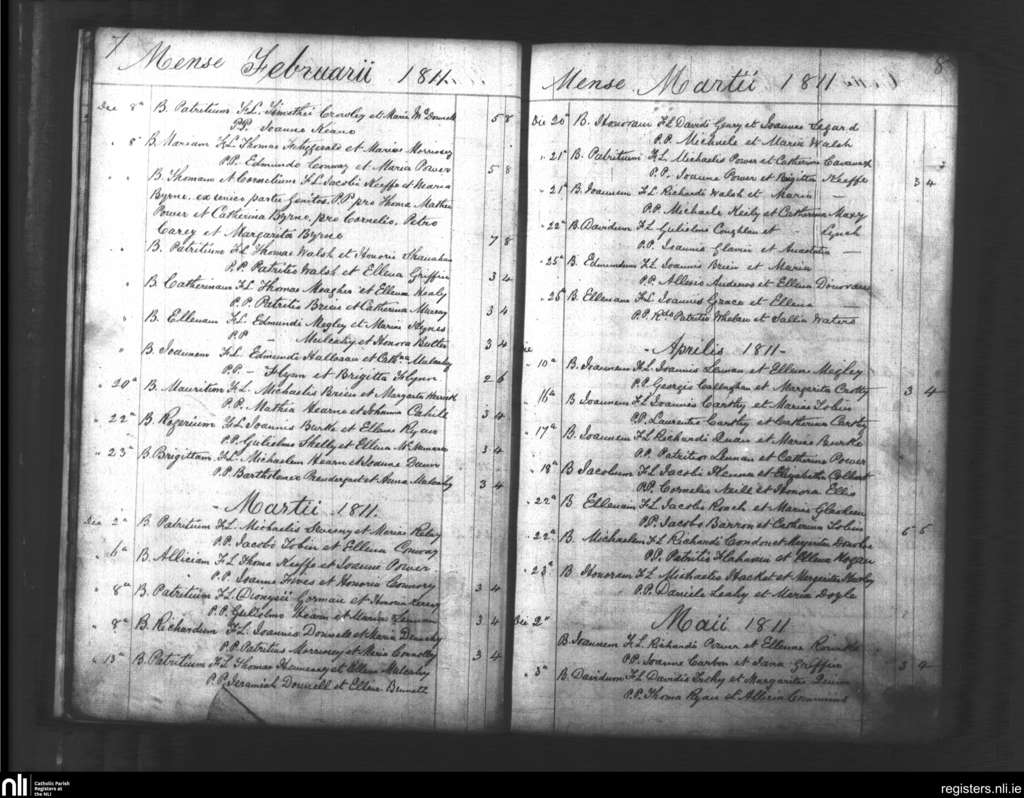 7
Mense Februarii 1811.
Die 8a B. Patritium F.L. Timothei Crowley et Maria McDonnell 5 8
P.P. Joanne Keane
" 8a B. Mariam F.L. Thomas Fitzgerald et Mariae Morrissey
P.P. Edmundo Conway et Maria Power 5 8
" " B. Thomam et Cornelium F.L. Jacobi Keeffe et Maria
Byrne, ex unico partu genitos, P.P. pro Thoma Mathew
Power et Catherina Byrne, pro Cornelio, Petro
Carey et Margarita Byrne 7 8
" " B. Patritium F.L. Thomae Walsh et Honoria Shanahan
P.P. Patritio Walsh et Ellena Griffin 3 4
" B. Catherinam F.L. Thomas Meagher et Ellena Healy
P.P. Patritio Brien et Catherina Murray 3 4
" B. Ellenam F.L. Edmundi Megley et Maria Hynes
P.P. — Mulcahy et Honora Butler 3 4
" B. Joannem F.L. Edmundo Halloran et Cathna Mulcahy
P.P. — Flynn et Brigitta Flynn 2 6
" 20a B. Mauritium F.L. Michaelis Brien et Margarita
P.P. Mathia Hearne et Johanna Cahill 3 4
" 22a B. Rogerium F.L. Joannis Burke et Ellena Ryan
P.P. Gulielmo Shelly et Ellena McNamara 3 4
" 23a B. Brigittam F.L. Michaelem Hearn et Joanna Daun
P.P. Bartholomeo Prendergast et Anna Mulcahy 3 4
- Martii 1811.
Die 2a B. Patritium F.L. Michaelis Sweeny et Maria Raley
P.P. Jacobo Tobin et Ellena Conway
" 6a B. Alliciam F.L. Thoma Keeffe et Joanna Power
P.P. Joanne Hives et Honoria Connory 3 4
" 8a B. Patritium F.L. Dionysii Gorman et Honora
P.P. Gulielmo Hearn et Maria Lennan 3 4
" 8a B. Richardum F.L. Joannis Donnell et Maria
P.P. Patritius Morrissey et Maria Connolly 3 4
" 13a B. Patritium F.L. Thomas Hennessy et Ellena Mulcahy
P.P. Jeremiah Donnell et Ellena Bennett
8
Mense Martii 1811
Die 20a B. Honoram F.L. Davidi Geary et Joannae Legard
P.P. Michaele et Maria Walsh
" 21a B. Patritium F.L. Michaelis Power et Catherina Cavanagh
P.P. Joanne Power et Brigitta Keeffe 3 4
" 21a B. Joannem F.L. Richardi Walsh et Maria —
P.P. Michaele Keily et Catherina Maxy
" 22a B. Davidum F.L. Gulielmi Coughlan et - Lynch
P.P. Joannis Glavin et Anastatia —
" 25a B. Edmundum F.L. Joannis Brien et Maria
P.P. Allesio Andrews et Ellena Donovan
" 26a B. Ellenam F.L. Joannis Grace et Ellena —
P.P. Rdo Patritio Whelan et Sallia Waters
- Aprilis 1811 -
Die 10a B. Joannem F.L. Joannis Lennan et Ellena Megley
P.P. Georgio Callaghan et Margarita Carthy 3 4
" 16a B. Joannem F.L. Joannis Carthy et Maria Tobin
P.P. Laurentio Carthy et Catherina Carthy
" 17a B. Joannem F.L. Richardi Quan et Maria Burke
P.P. Patritio Lennan et Catherina Power
" 18a B. Jacobum F.L. Jacobi Henna et Elizabetha Colbert
P.P. Cornelio Neill et Honora Ellis
" 22a B. Ellenam F.L. Jacobi Roach et Maria Gleeson
P.P. Jacobo Barron et Catherina Tobin 5 5
" 22a B. Michaelem F.L. Richardi Condon et Margarita
P.P. Patritii Flahavan et Ellena Hogan
" 23a B. Honoram F.L. Michaelis Hacket et Margarita Hurley
P.P. Daniele Leahy et Maria Doyle
Maii 1811
Die 2a
B. Joannem F.L. Richardi Power et Ellena
P.P. Joanne Carbon et Sara Griffin 3 4
" 5a B. Davidum F.L. Davidis Fahy et Margarita Quinn
P.P. Thoma Ryan et Allicia Commins
nli
Catholic Parish
Registers at
the NLI
registers.nli.ie